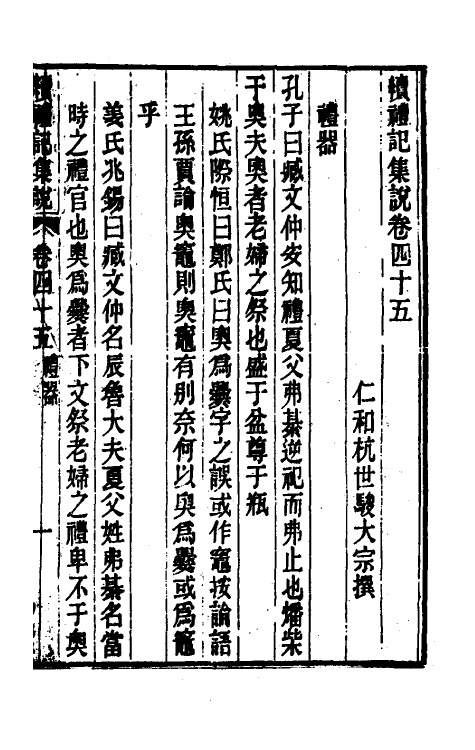 續禮記集說卷四十五
仁和杭世駿大宗撰
禮器
孔子曰臧文仲安知禮夏父弗綦逆祀而弗止也燔柴
于奧夫奧者老婦之祭也盛于盆尊于瓶
姚氏際恒曰鄭氏曰奧爲爨字之誤或作竈按論語
王孫賈論奧竈則奧竈有別奈何以奧爲爨或爲竈
乎
姜氏兆錫曰臧文仲名辰魯大夫夏父姓弗綦名當
時之禮官也奧爲爨者下文祭老婦之禮卑不于奧
續禮記集說 卷四十五 禮器 一